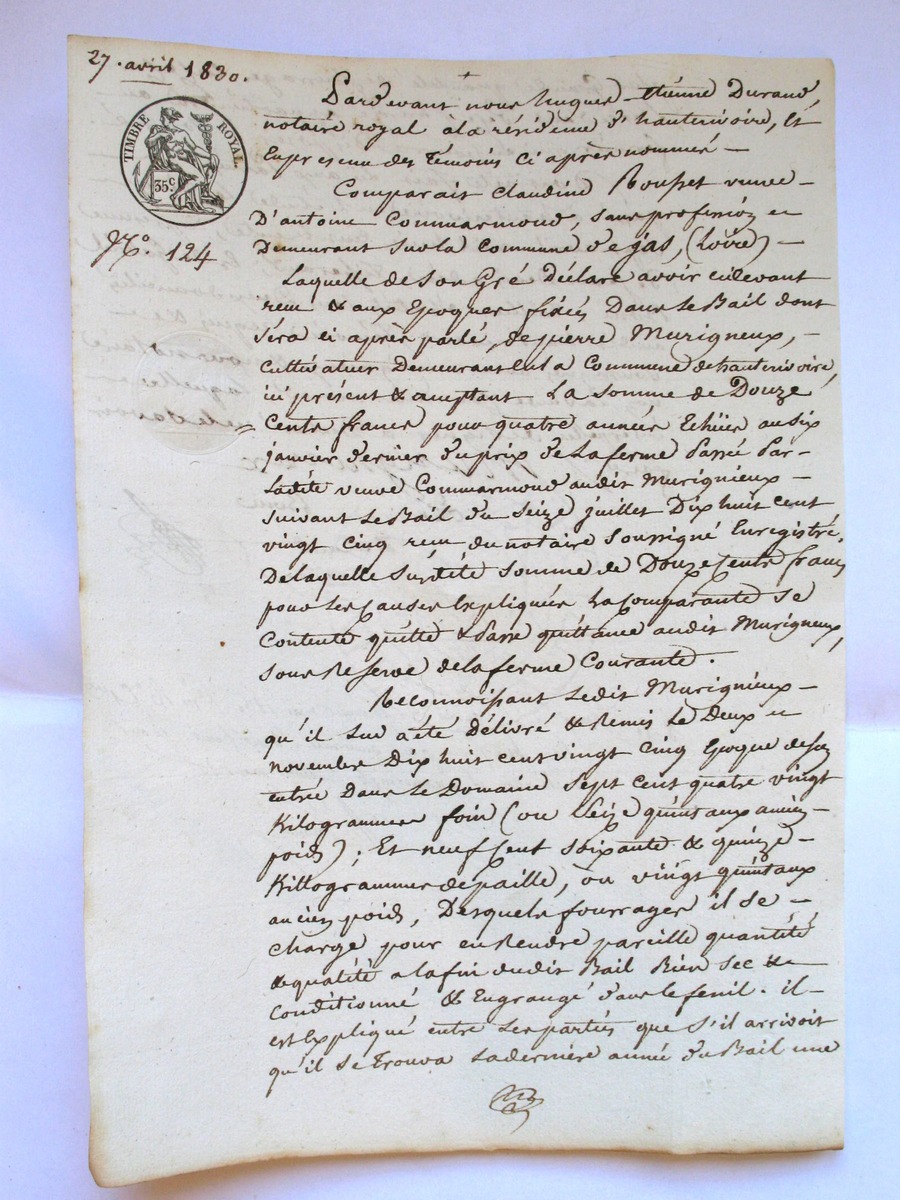 27. avril 1830.
TIMBRE ROYAL.
35c
No. 124
Pardevant nous hugues étienne Durand,
notaire royal à la résidence d'hauterivoire, Et
En presence des Témoins Ci après nommés —
Comparait Claudine Rousset veuve —
D'antoine Commarmond, sans profession et
Demeurant sur la Commune de jas, (Loire) —
Laquelle de Son Gré Déclare avoir cidevant
reçu & aux Epoques fixées Dans Le Bail dont
Séra ci après parlé, de pierre Murigneux, —
Cultivateur Demeurant en la Commune de hauterivoire,
ici présent & acceptant La somme de Douze
Cents francs pour quatre années Echües au six
janvier dernier du prix de La ferme Passé Par —
Ladite veuve Commarmond audit Murignieux —
Suivant Le Bail du Seize juillet Dix huit cent
vingt cinq reçu du notaire soussigné Enregistré.
De laquelle Susdité somme de Douze Cents francs
pour Les Causes Expliquées La Comparante se
Contente quitte & Passe quittance audit Murigneux,
sous Reserve de la ferme Courante.
Reconnoissant Ledit Murignieux —
qu'il lui a été Délivré & Remis Le Deux
novembre Dix huit cent vingt cinq Epoque de son
entrée Dans Le Domaine Sept cent quatre vingt
Kilogrammes foin (ou Seize quintaux anciens
poids); Et neuf Cent soixante & quinze —
Killogrammes de paille, ou vingt quintaux
anciens poids, Desquels fourrages il se —
charge pour en Rendre pareille quantité
& qualité a la fin dudit Bail Bien sec &
Conditionné & Engrangé dans le fenil. il —
est Expliqué entre Les parties que S'il arrivoit
qu'il se Trouva La dernière année du Bail une